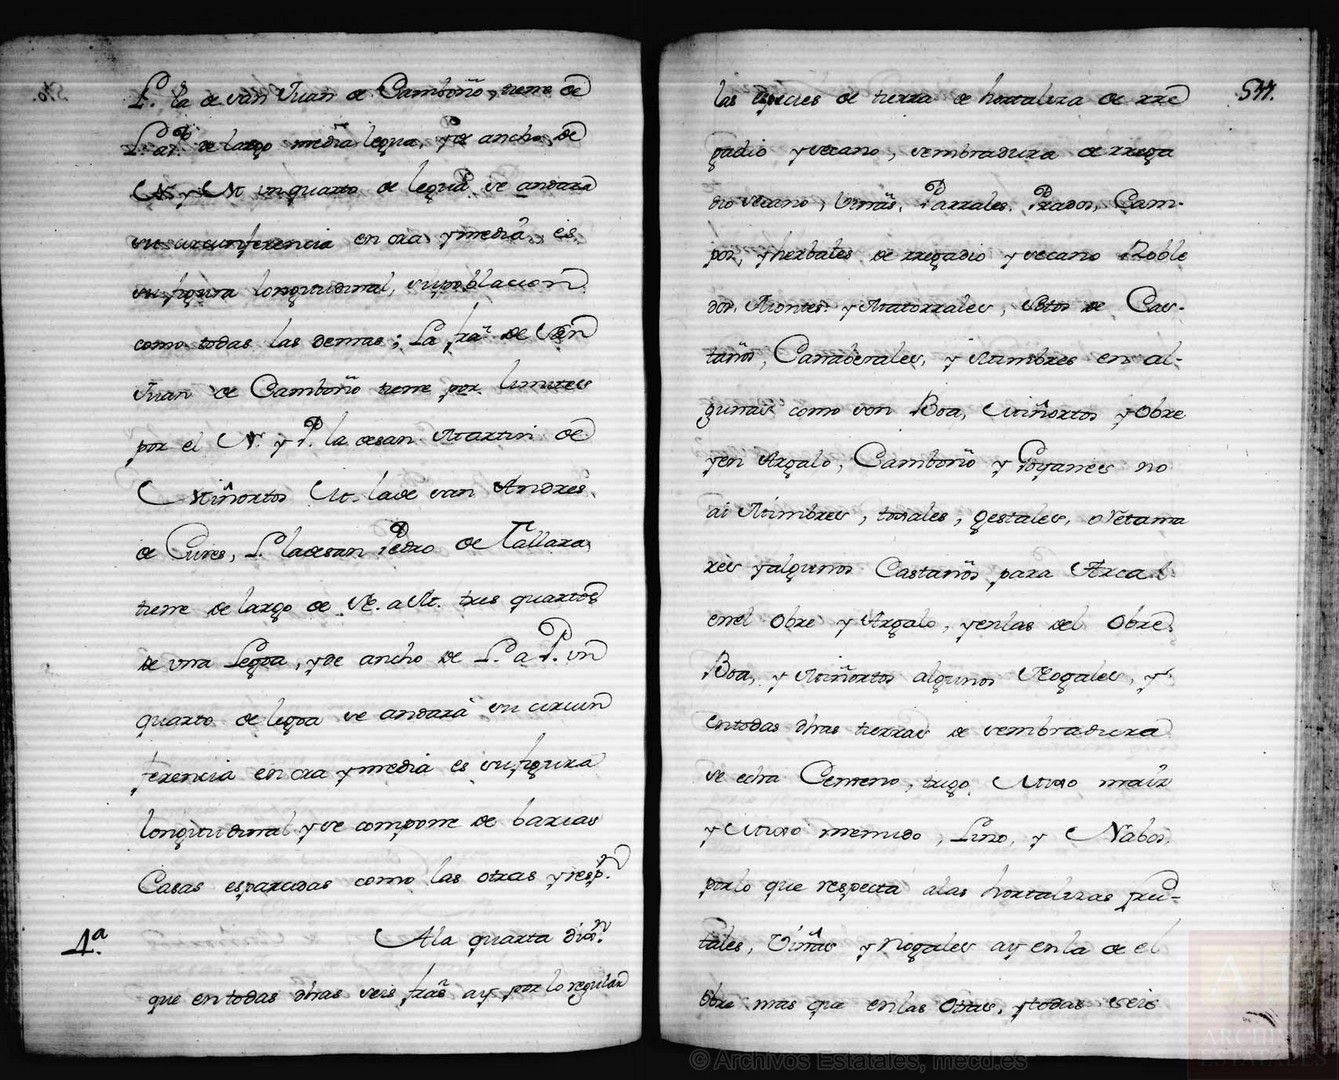 P. la de san Juan de Camboño, tiene de
L. a P. de largo media legua, y de ancho de
N. y M. un quarto de legua, se andara
su circunferencia en ora y media, es
su figura longitudinal, su poblacion
como todas las demas; La fra. de San
Juan de Camboño tiene por limites
por el N. y P. la de san Martin de
Miñortos M. la de san Andres
de Cures, L. la de san Pedro de Tallara,
tiene de largo de N. a M. tres quartos
de una Legoa, y de ancho de L. a P. un
quarto de legoa se andará su circun
ferencia en ora y media es su figura
longitudinal y se compone de barias
Casas esparcidas como las otras y resp.n
4a. A la quarta dixn.
que en todas dhas seis fras. ay por lo regular
544.
las especies de tierra de hortaliza de rre
gadio y secano, sembradura de rrega
dio secano, Viñas, Parrales, Prados, Cam-
pos, y herbales de rregadio y secano Roble
dos, Montes y Matorrales, Sotos de Cas-
taños, Cañaberales, y Mimbres en al-
gunas como son Boa, Miñortos y Obre
y en Argalo, Camboño y Goyanes no
ai Mimbres, toxales, gestales, Retama
res y algunos Castaños para Arcos
en el Obre y Argalo, y en las del Obre,
Boa, y Miñortos algunos Nogales, y
en todas dhas tierras de sembradura
se echa Centeno, trigo, Mixo maiz
y Mixo menudo, Lino, y Nabos,
por lo que respecta a las hortalizas fru-
tales, Viñas y Nogales ay en la de el
Obre mas que en las Otras, y todas seis
© Archivos Estatales, mecd.es
ARCHIVOS
ESTATALES